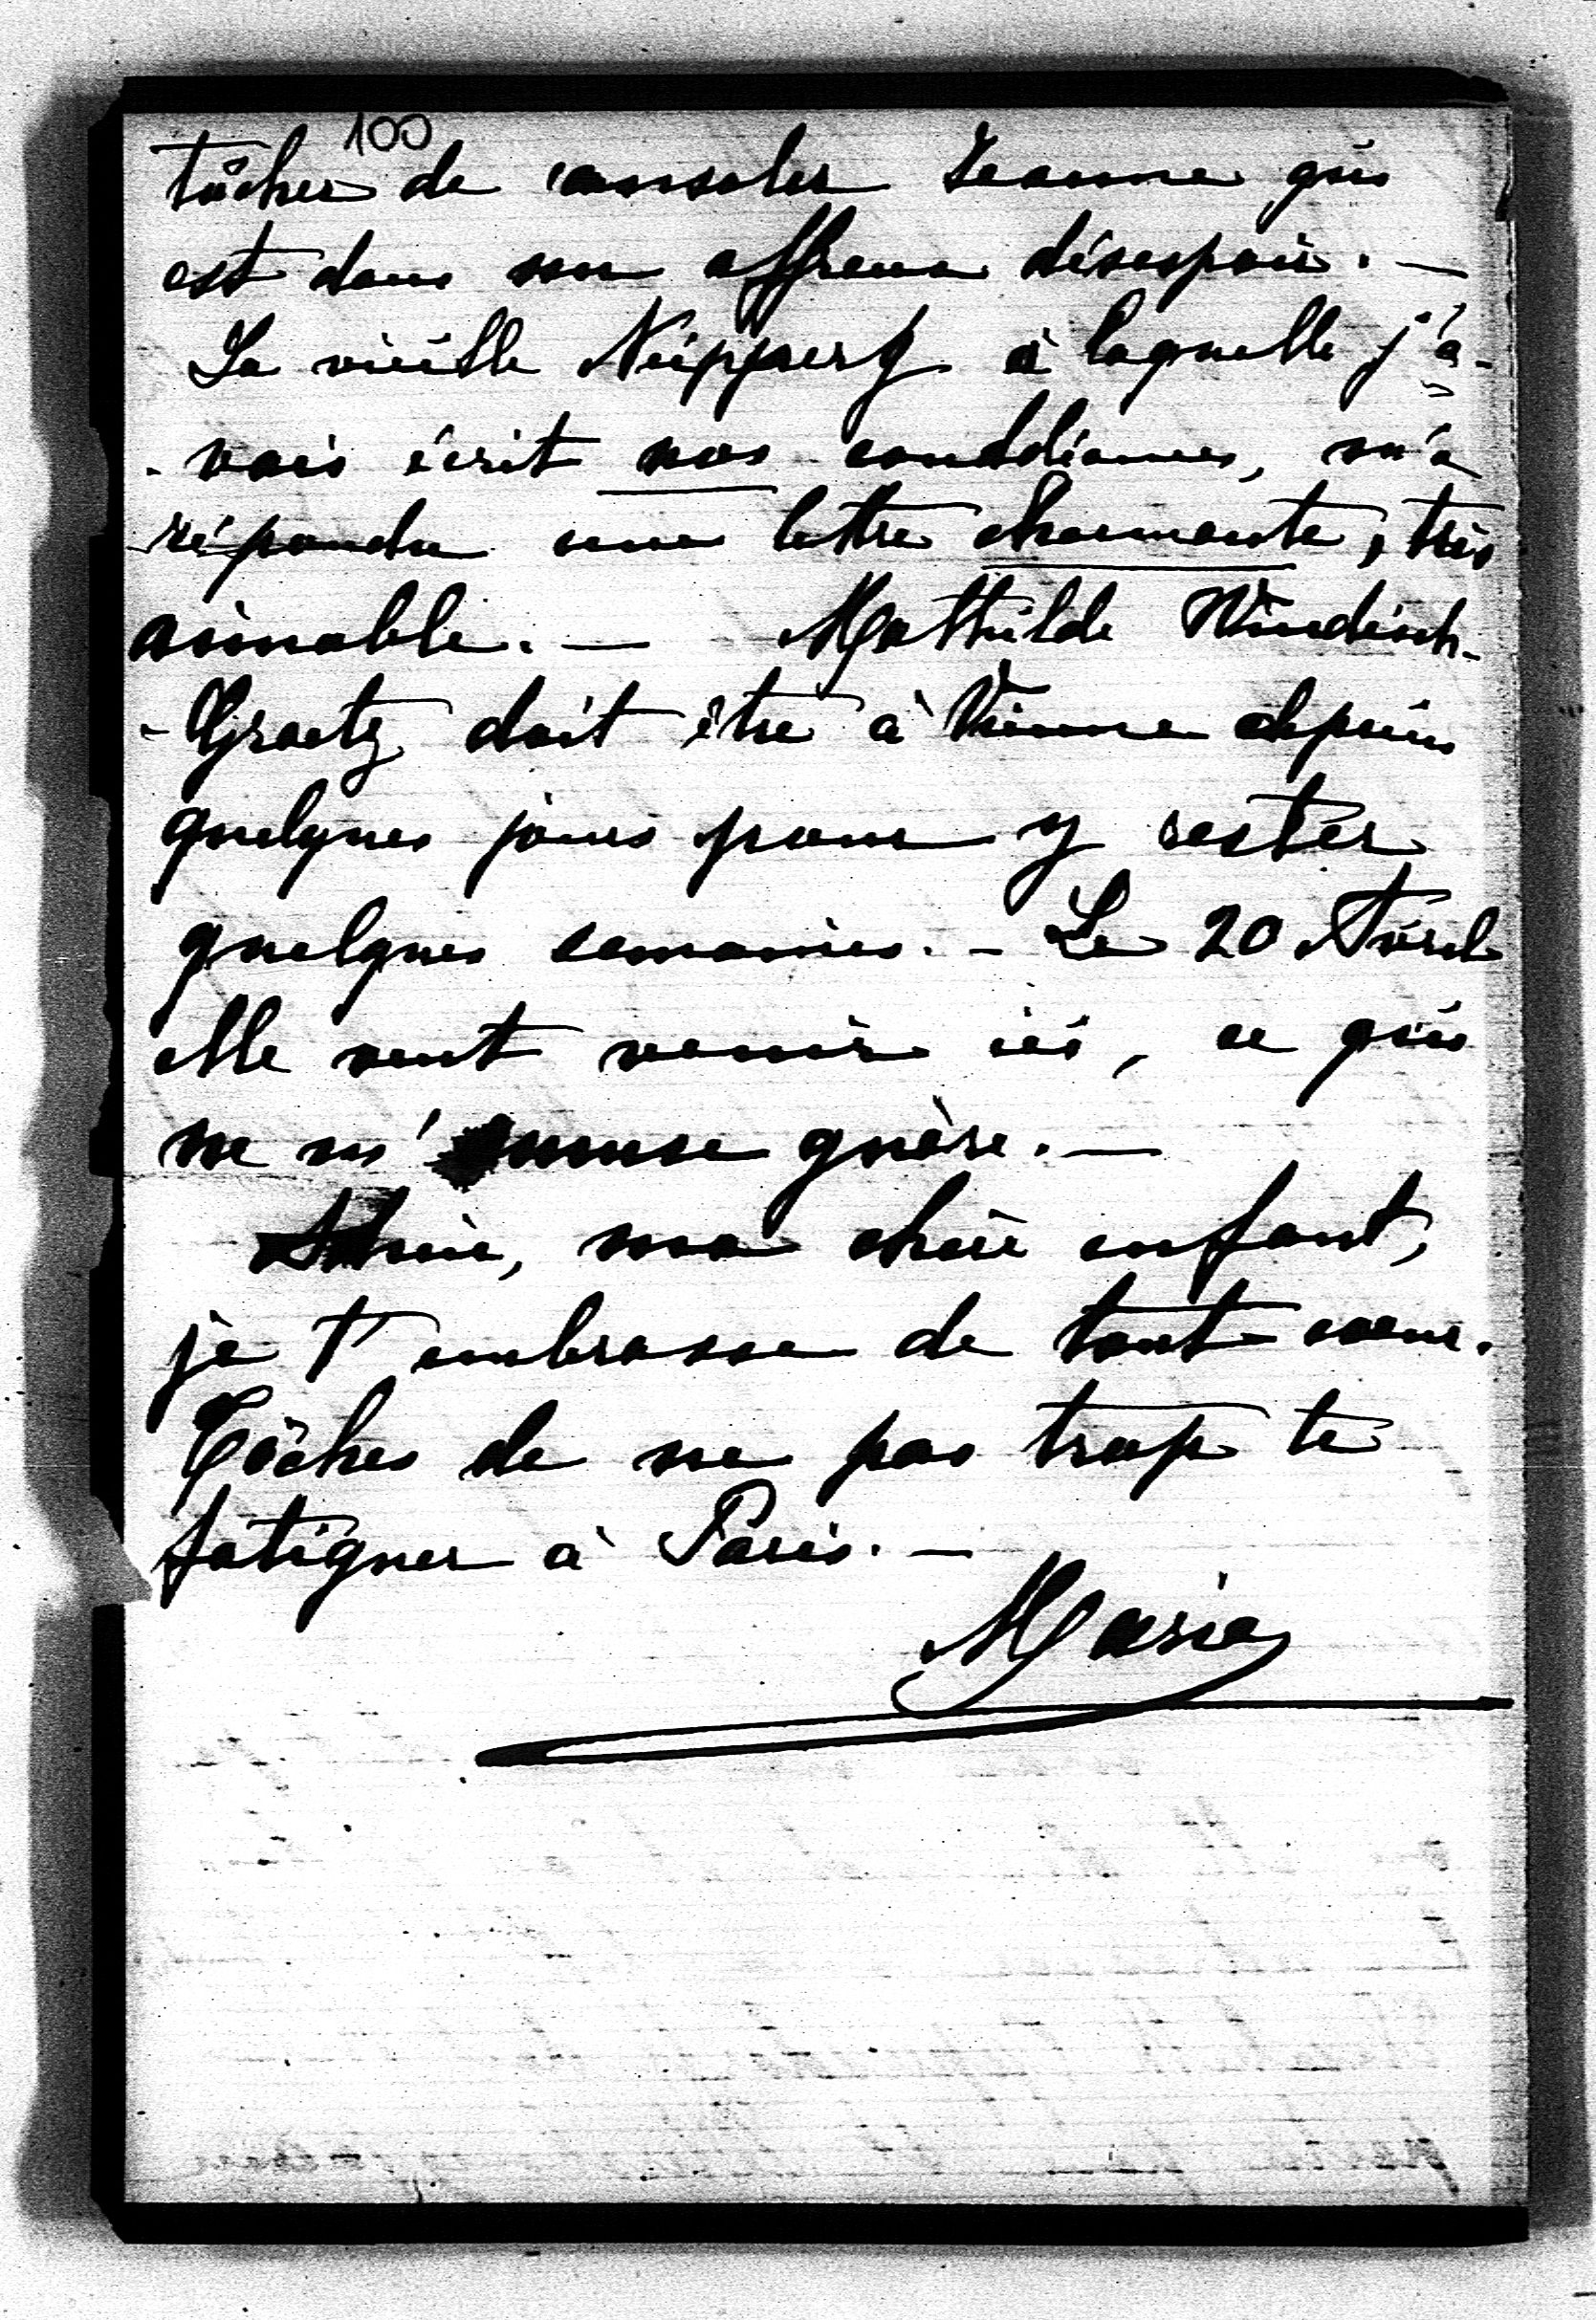 100
tâcher de consoler Jeanne qui
est dans son affreux désespoir. —
La vieille Neipperg à laquelle j'a-
-vais écrit nos condoléances, m'a
répondu une lettre charmante, très
aimable. — Mathilde Windisch-
-Graetz doit être à Vienne depuis
quelques jours pour y rester
quelques semaines. - Le 20 Avril
elle veut venir ici, ce qui
ne m'amuse guère. —
Adieu, ma chère enfant,
je t'embrasse de tout coeur.
Tâches de ne pas trop te
fatiguer à Paris. —
Marie